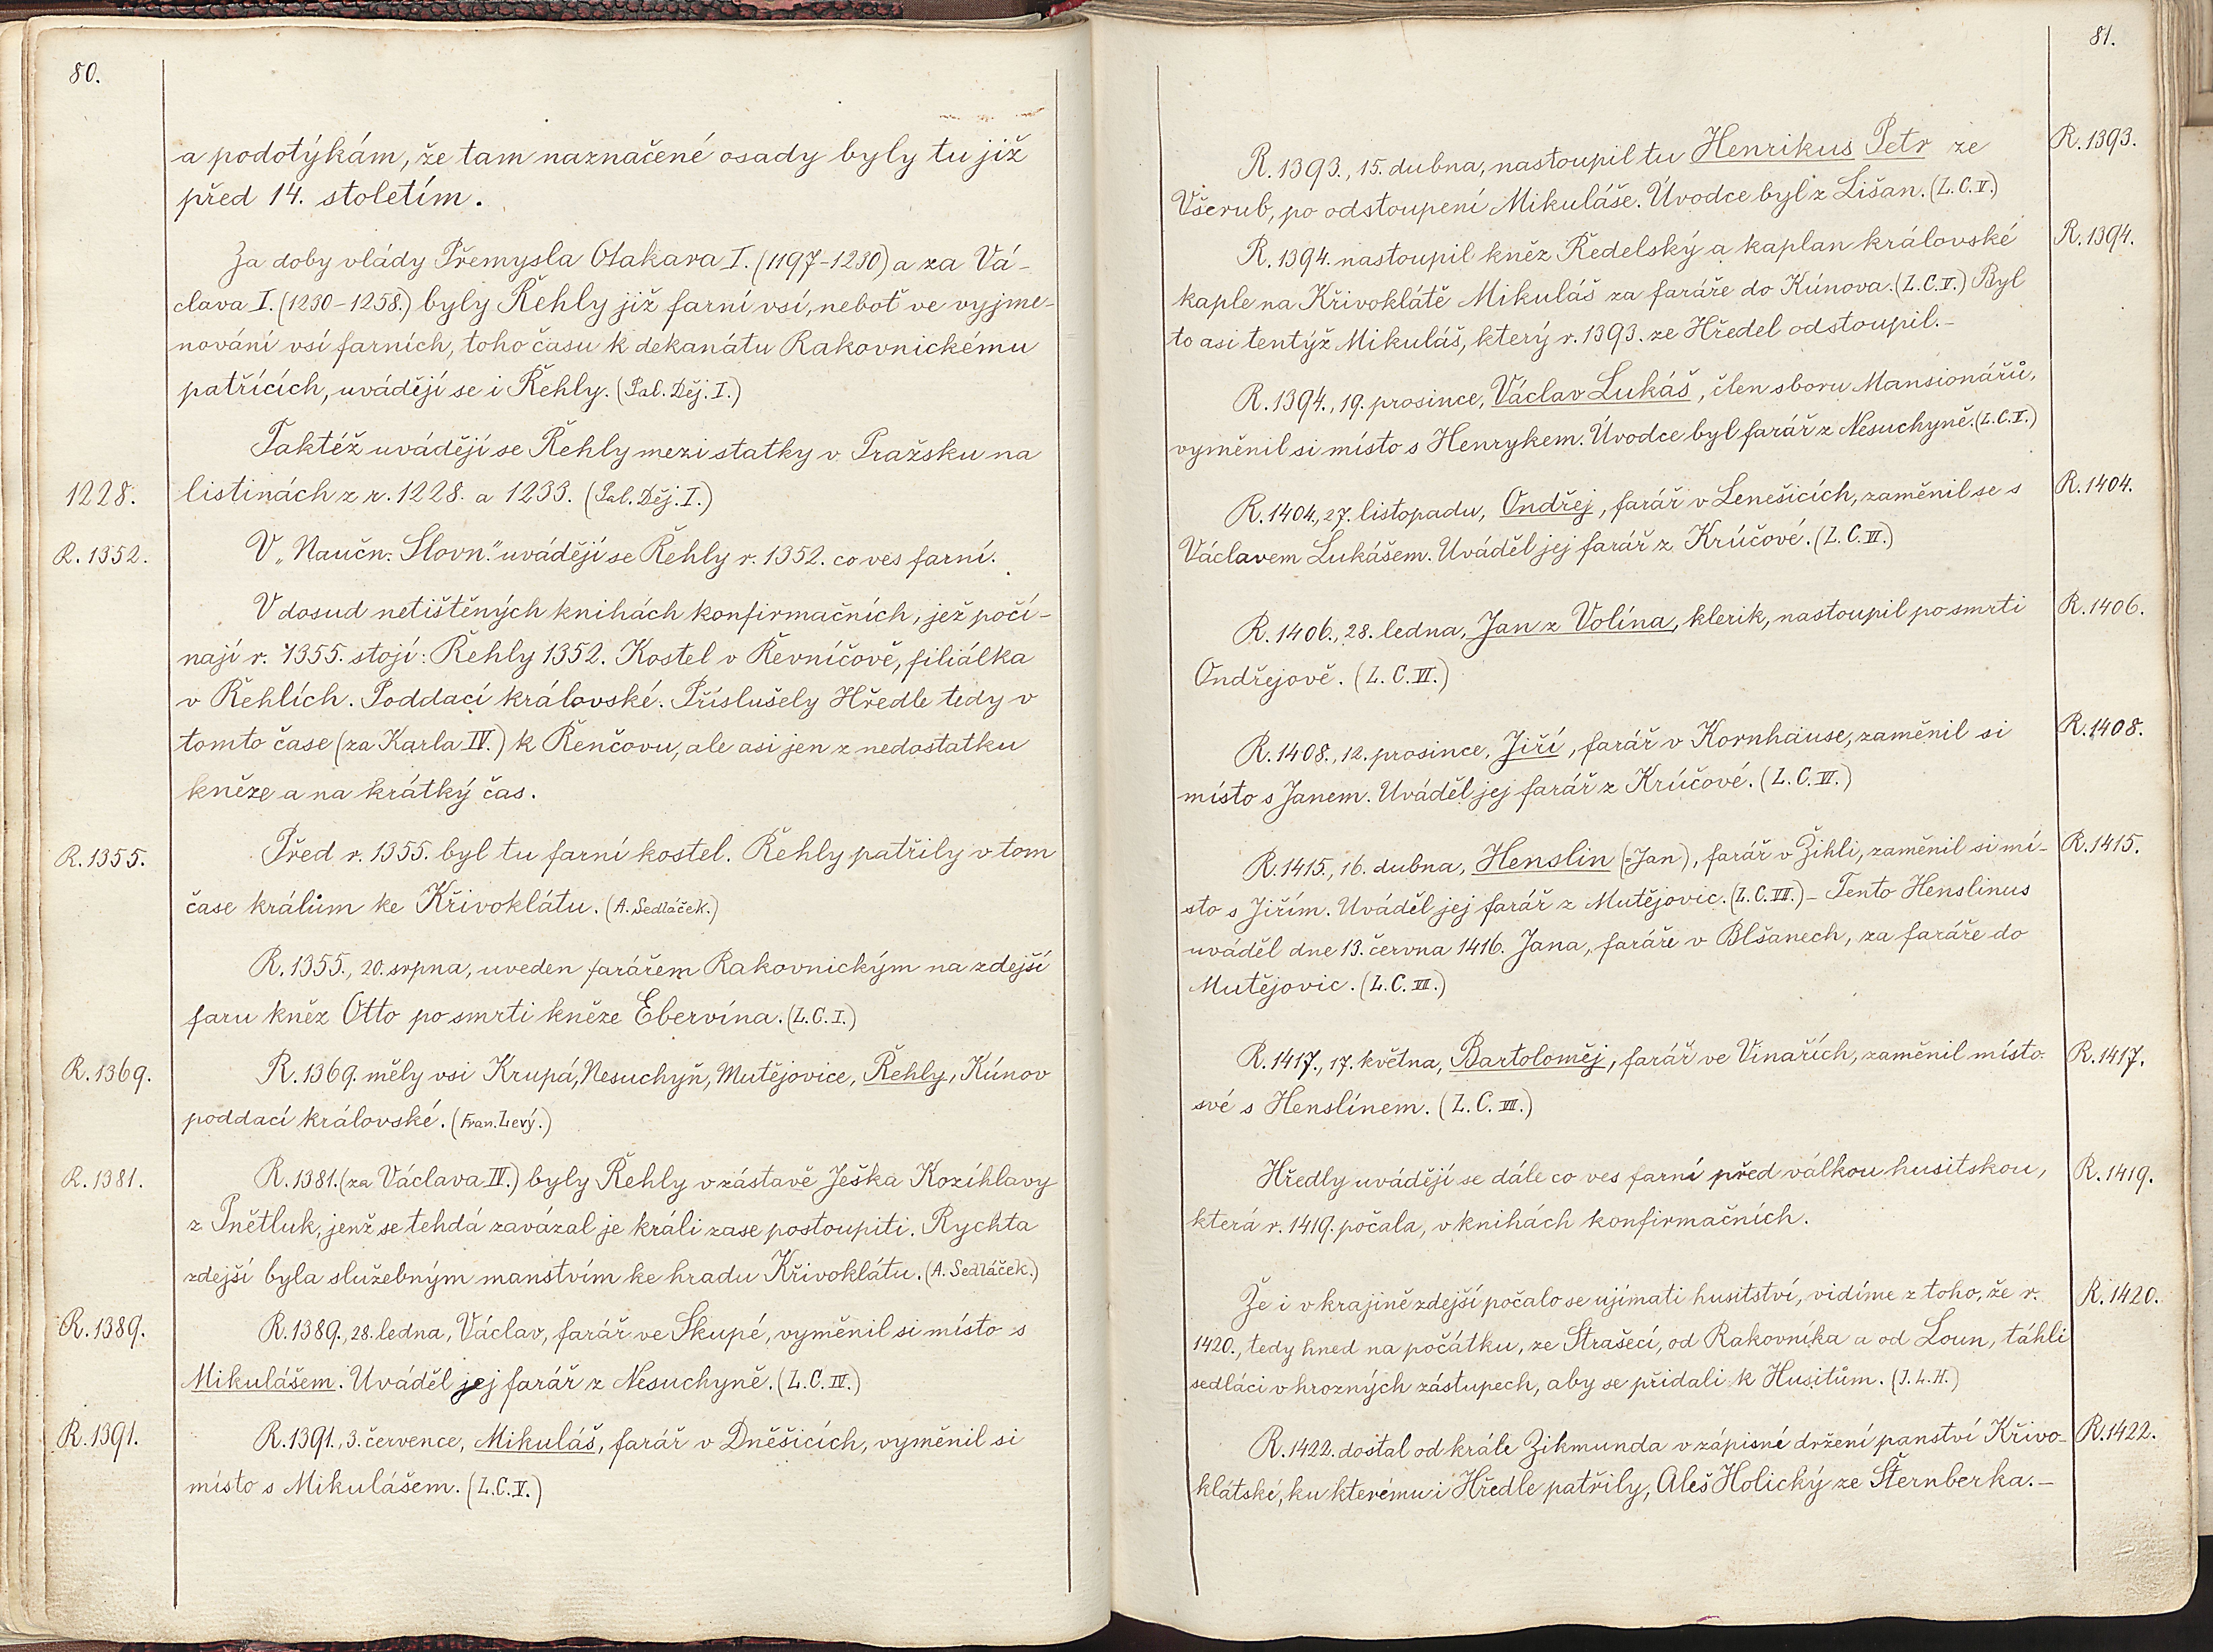 80.
a podotýkám, že tam naznačené osady byly tu již
před 14. stoletím.
Za doby vlády Přemysla Otakara I. (1197-1230) a za Vá-
clava I. (1230-1258.) byly Řehly již farní vsí, neboť ve vyjme-
nování vsí farních, toho času k dekanátu Rakovnickému
patřících, uvádějí se i Řehly. (Pal. Děj. I.)
Taktéž uvádějí se Řehly mezi statky v Pražsku na
1228.
listinách z r. 1228. a 1233. (Pal. Děj. I.)
R. 1352.
V „Naučn. Slovn." uvádějí se Řehly r. 1352. co ves farní.
V dosud netištěných knihách konfirmačních, jež počí-
nají r. 1355. stojí: Řehly 1352. Kostel v Řevníčově, filiálka
v Řehlích. Poddací královské. Příslušely Hředle tedy v
tomto čase (za Karla IV.) k Řenčovu, ale asi jen z nedostatku
kněze a na krátký čas.
R. 1355.
Před r. 1355. byl tu farní kostel. Řehly patřily v tom
čase králům ke Křivoklátu. (A. Sedláček.)
R. 1355., 20. srpna, uveden farářem Rakovnickým na zdejší
faru kněz Otto po smrti kněze Ebervína. (L. C. I.)
R. 1369.
R. 1369. měly vsi Krupá, Nesuchyň, Mutějovice, Řehly, Kúnov
poddací královské. (Fran. Levý.)
R. 1381.
R. 1381. (za Václava IV.) byly Řehly v zástavě Ješka Kozíhlavy
z Pnětluk, jenž se tehdá zavázal je králi zase postoupiti. Rychta
zdejší byla služebným manstvím ke hradu Křivoklátu. (A. Sedláček.)
R. 1389.
R. 1389., 28. ledna, Václav, farář ve Skupé, vyměnil si místo s
Mikulášem. Uváděl jej farář z Nesuchyně. (L. C. IV.)
R. 1391.
R. 1391., 3. července, Mikuláš, farář v Dněšicích, vyměnil si
místo s Mikulášem. (L. C. V.)
81.
R. 1393., 15. dubna, nastoupil tu Henrikus Petr ze
R. 1393.
Všerub, po odstoupení Mikuláše. Úvodce byl z Lišan. (L. C. V.)
R. 1394. nastoupil kněz Ředelský a kaplan královské
R. 1394.
kaple na Křivoklátě Mikuláš za faráře do Kúnova. (L. C. V.) Byl
to asi tentýž Mikuláš, který r. 1393. ze Hředel odstoupil.-
R. 1394., 19. prosince, Václav Lukáš, člen sboru Mansionářů,
vyměnil si místo s Henrykem. Úvodce byl farář z Nesuchyně. (L. C. V.)
R. 1404., 27. listopadu, Ondřej, farář v Lenešicích, zaměnil se s
R. 1404.
Václavem Lukášem. Uváděl jej farář z Krúčové. (L. C. VI.)
R. 1406., 28. ledna, Jan z Volína, klerik, nastoupil po smrti
R. 1406.
Ondřejově. (L. C. VI.)
R. 1408., 12. prosince, Jiří, farář v Kornhause, zaměnil si
R. 1408.
místo s Janem. Uváděl jej farář z Krúčové. (L. C. VI.)
R. 1415., 16. dubna, Henslin (=Jan), farář v Žihli, zaměnil si mí-
R. 1415.
sto s Jiřím. Uváděl jej farář z Mutějovic. (L. C. VII.) - Tento Henslinus
uváděl dne 13. června 1416. Jana, faráře v Blšanech, za faráře do
Mutějovic. (L. C. VII.)
R. 1417., 17. května, Bartoloměj, farář ve Vinařích, zaměnil místo
R. 1417.
své s Henslínem. (L. C. VII.)
Hředly uvádějí se dále co ves farní před válkou husitskou,
R. 1419.
která r. 1419. počala, v knihách konfirmačních.
Že i v krajině zdejší počalo se ujímati husitství, vidíme z toho, že r.
R. 1420.
1420., tedy hned na počátku, ze Strašecí, od Rakovníka a od Loun, táhli
sedláci v hrozných zástupech, aby se přidali k Husitům. (J. L. H.)
R. 1422. dostal od krále Zikmunda v zápisné držení panství Křivo-
R. 1422.
klátské, ku kterému i Hředle patřily, Aleš Holický ze Šternberka.-